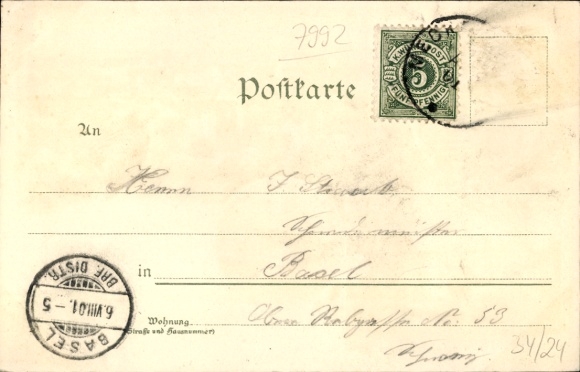 7992
K.WÜRTT.POST
5
FÜNF PFENNIG
Postkarte
An
Herrn J.
Schneidermeister
in Basel
Wohnung
(Straße und Hausnummer)
Obere No. 53
Schweiz
BASEL
6.VIII.01-5
BRF. DISTR.
34/24